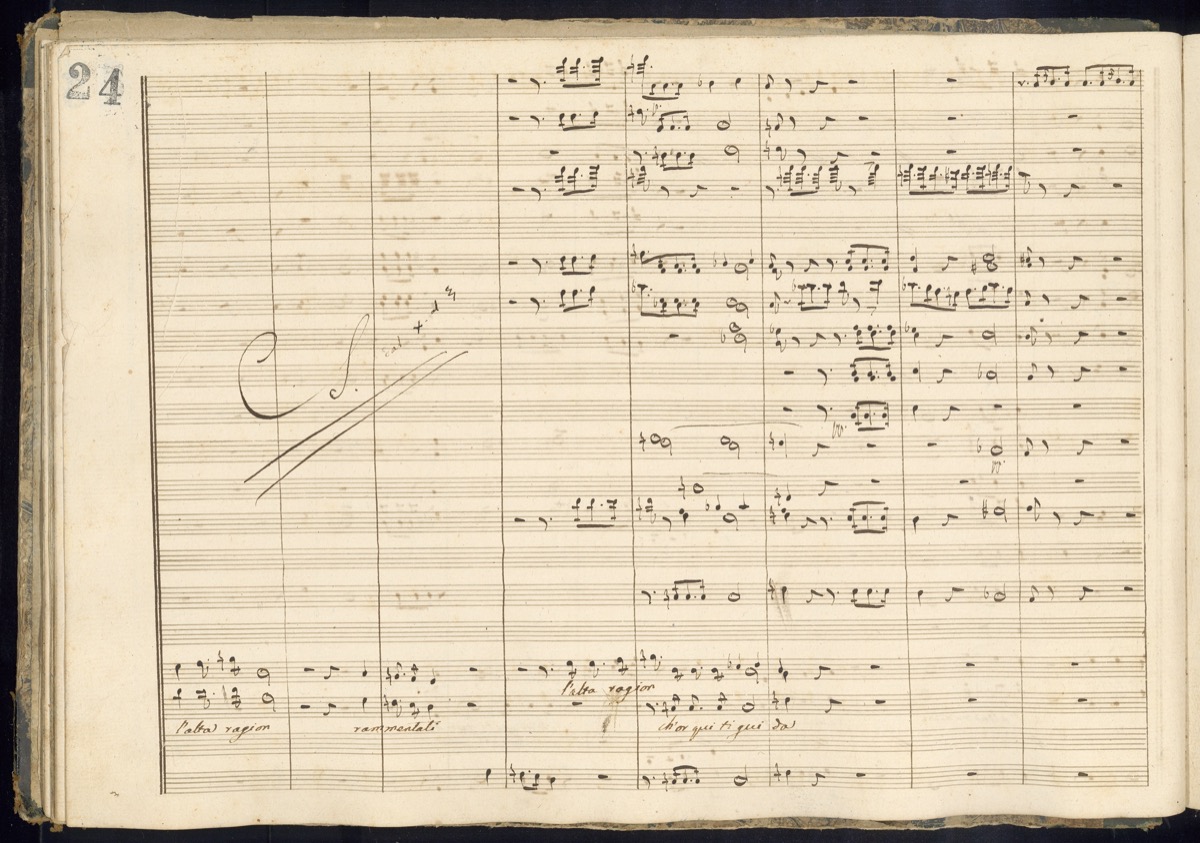 24
C S.
l'alta ragion
l'alta ragion rammentati ch'or qui ti gui da